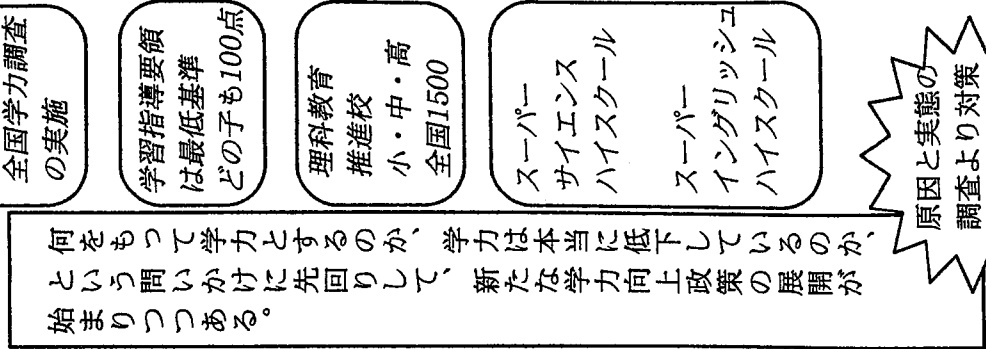 全国学力調査
の実施
学習指導要領
は最低基準
どの子も100点
理科教育
推進校
小・中・高
全国1500
スーパー
サイエンス
ハイスクール
スーパー
イングリッシュ
ハイスクール
原因と実態の
調査より対策
何をもって学力とするのか、学力は本当に低下しているのか、
という問いかけに先回りして、新たな学力向上政策の展開が
始まりつつある。